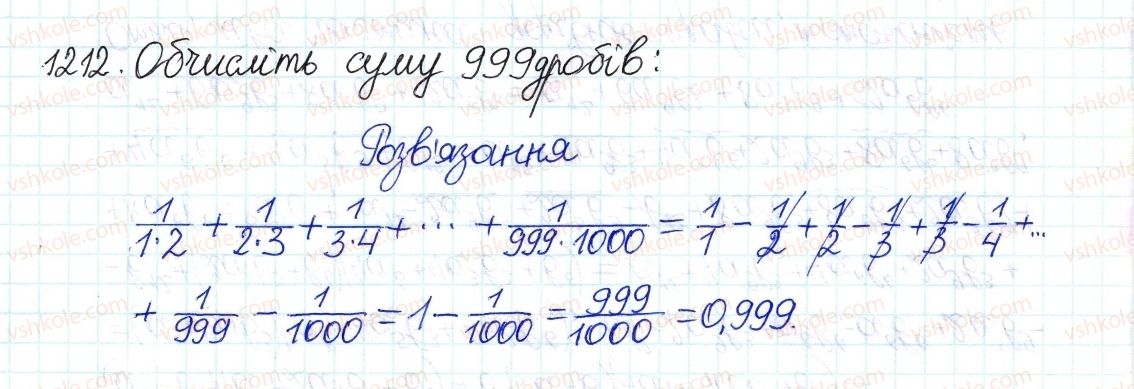 1212. Обчисліть суму 999 дробів:
Розв'язання
1/(1·2) + 1/(2·3) + 1/(3·4) + ... + 1/(999·1000) = 1/1 - 1/2 + 1/2 - 1/3 + 1/3 - 1/4 + ...
+ 1/999 - 1/1000 = 1 - 1/1000 = 999/1000 = 0,999.